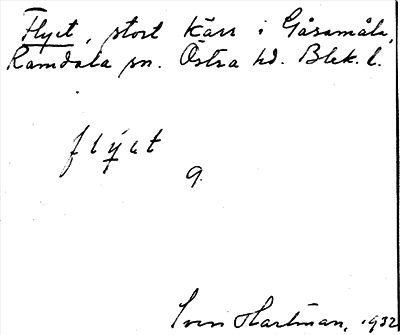 Flyet, stort kärr i Gåsamåla,
Ramdala sn. Östra hd. Blek. l.
flýət
9.
Sven Hartman, 1932